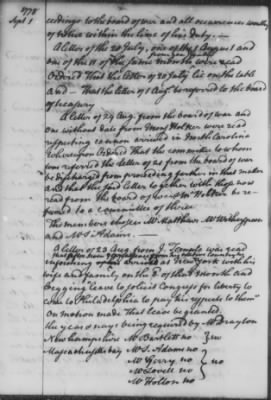 1778
Sept 1
ceedings to the board of war and all occurrences worthy
of notice within the line of his duty. —
A letter of the 20 July, one of the 1 August and
one of the 11 of the same month were read
Ordered That the letter of 20 July lie on the table
and — That the letter of 1 Augt be referred to the board
of treasury
A letter of 29 Aug. from the board of war and
one without date from Mons Holker were read
respecting cannon arrived in North Carolina
Whereupon Ordered That the committee to whom
was referred the letter of 25 from the board of war
be discharged from proceeding farther in that matter
and that the said letter together with those now
read from the board of war & Mr Holker be re-
ferred to a committee of three
The members chosen Mr Matthews Mr Witherspoon
and Mr S. Adams. —
A letter of 23 Aug from J. Temple was read
informing
that after
arrived at New York with his
wife and family on the 5 of that month and
begging "leave to solicit Congress for liberty to
come to Philadelphia to pay his respects to them"
On motion made that leave be granted,
the yeas & nays being required by Mr Drayton
New hampshire Mr Bartlett no } no
Massachusetts bay Mr S. Adams no
Mr Gerry no
Mr Lovell no
Mr Holten no
} no